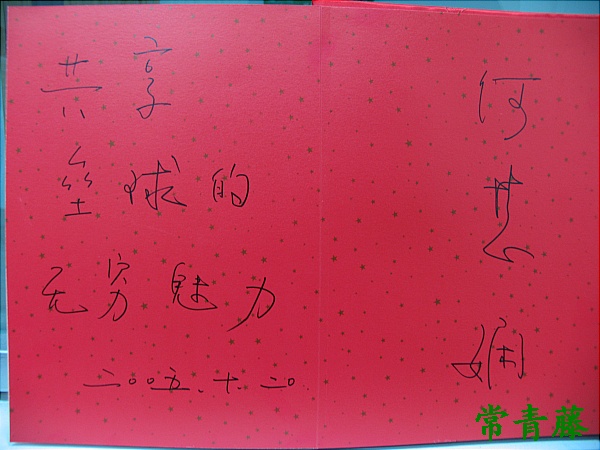 共享
垒球的
无穷魅力
二〇〇五.十.二〇
何慧娴
常青藤